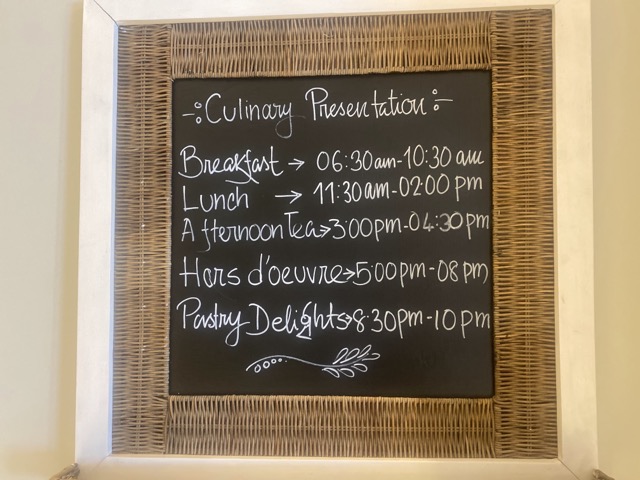 -:Culinary Presentation:-
Breakfast → 06:30am-10:30 am
Lunch → 11:30am-02:00 pm
Afternoon Tea→3:00pm-04:30pm
Hors d'oeuvre→5:00pm-08pm
Pastry Delights→8:30pm-10pm